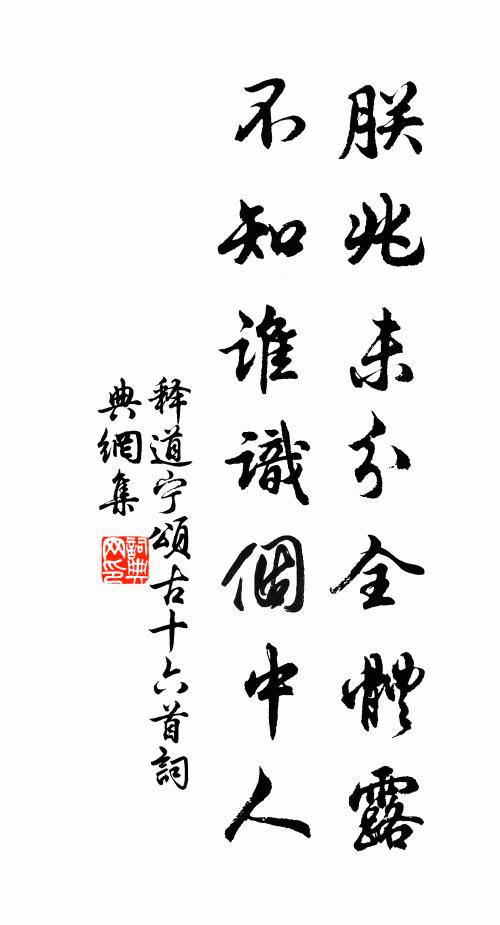 朕兆未分全體露
不知誰識個中人
释道宁頌古十六首詞
典網集
詞典網印